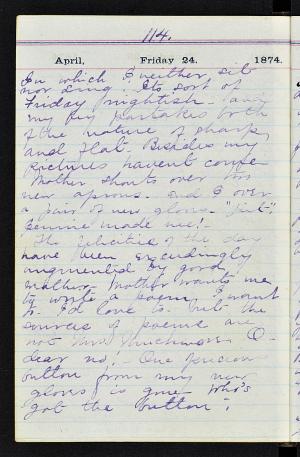 114.
April, Friday 24. 1874.
In which I neither, sit
nor sing. Its sort of
Friday nightish. and
my key partakes both
of the nature of sharp
and flat. Besides my
pictures havent come
Mother shouts over two
new aprons. and I over
a pair of new gloves. "Jist"
made me!
The felicities of the day
have been exceedingly
augmented by good
Mother wants me
to write a poem. I want
to. I'd love to. but the
sources of poems are
not thus O-
dear no! One precious
button from my new
gloves is gone who's
got the button?